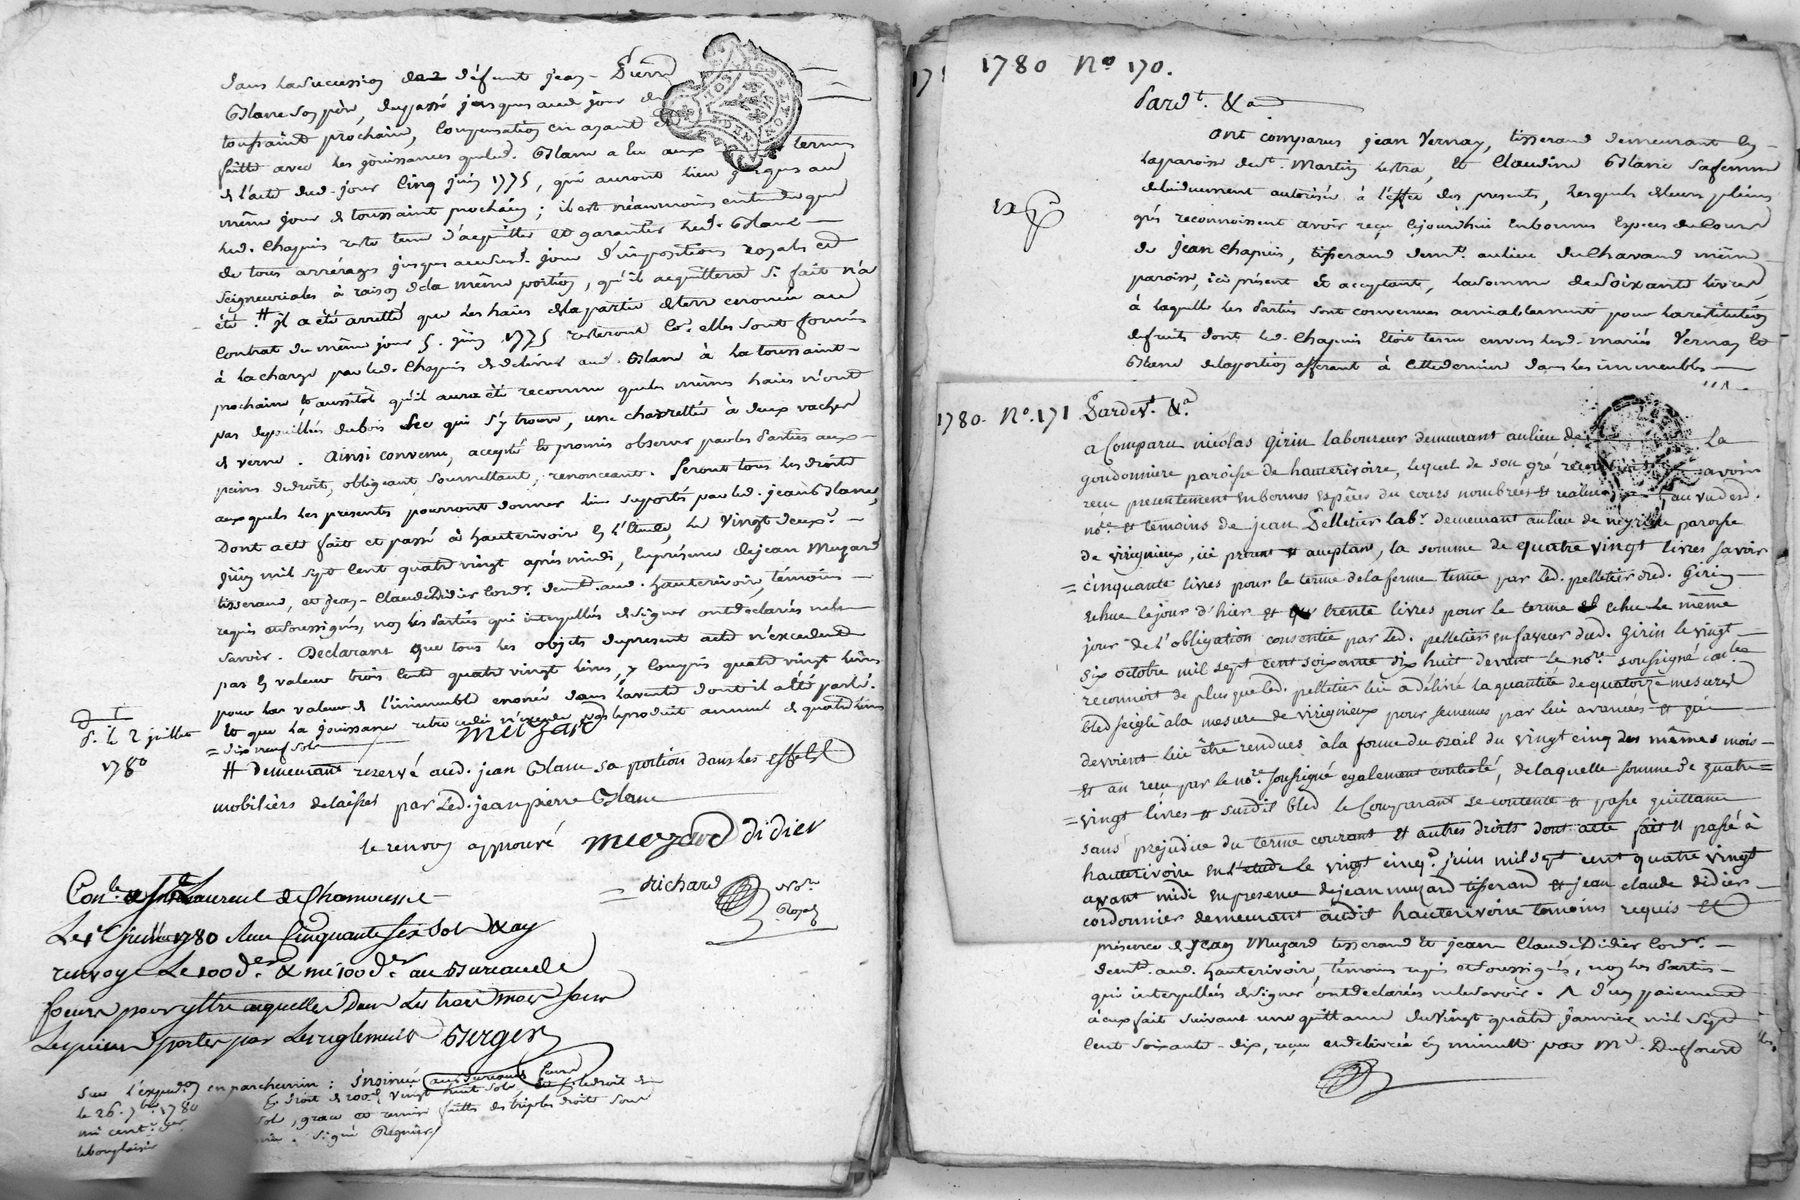 dans la succession de défunt jean-Pierre
Blanc son père, du passé jusques aud. jour de
toussaint prochain, compensation en ayant été
faitte avec les jouissances que led. Blanc a eu aux termes
de l'acte dud. jour cinq juin 1775, qui auront lieu jusques au
même jour de toussaint prochain; il est néanmoins entendu que
led. Chapuis reste tenu d'acquitter et garantir led. Blanc
de tous arrérages jusques aud. jour d'impositions royales et
seigneuriales à raison de la même portion, qu'il acquittera si fait n'a
été. # il a été arretté que les haies de la partie de terre énoncée au
contrat du même jour 5. juin 1775 resteront co. elles sont formées
à la charge par led. Chapuis de délivrer aud. Blanc à la toussaint
prochaine et aussitôt qu'il aura été reconnu que les mêmes haies n'ont
pas dépouillées du bois sec qui s'y trouve, une charrettée à deux vaches
de verne. Ainsi convenu, accepté et promis observer par les Parties aux
peines de droit, obligeant, soumettant, renonceant. Seront tous les droits
auxquels les presentes pourront donner lieu suportés par led. jean Blanc,
Dont acte fait et passé à hauterivoire en l'Etude, le vingt deux.
juin mil sept cent quatre vingt après midi, en présence de jean Muzard
tisserand, et jean-Claude Didier cord.r demt. aud. hauterivoire, témoins
requis et soussignés, non les Parties qui interpellés de signer ont déclarés ne le
savoir. Déclarant que tous les objets du present acte n'excedent
pas en valeur trois cent quatre vingt livres, y compris quatre vingt livres
pour la valeur de l'immeuble énoncé dans la vente dont il a été parlé.
et que la jouissance retrocedée n'excede pas le produit annuel de quatre livres
= dix neuf sols
muzard
d t
s. le 2 juillet
1780
# demeurant reservé aud. jean Blanc sa portion dans les effets
mobiliers delaissés par led. jean pierre Blanc
le renvoy approuvé muzard didier
Richard Nore
Royal
Con.le a St Laurent de Chamousset
Le 1er juillet 1780 Reçu Cinquante six sols & ay
renvoyé le 100 d.er & mi 100 d.er au Bureau de
feurs pour y être acquittés Dans les trois mois sous
les peines portées par Les reglements Berger
Sur l'expedon en parchemin: Insinué au Bureau de feurs
le 26. 7bre 1780 droit de 100e. vingt huit sols, et droit de
mi cent. der sols, grace et remise faitte des triples droits sous
. signé Regnier
1780 No 170.
Pardt. &a
ont comparus jean Vernay, tisserand demeurant en
la paroisse de st. Martin lestra, et Claudine Blanc sa femme
debuement autorisée à l'effet des presents, lesquels de leurs pleins
Exp
grés reconnoissent avoir reçu cejourd'hui en bonnes Especes du Cours
de jean Chapuis, tisserand demt. au lieu du Chavand même
paroisse, ici présent et acceptant, la somme de soixante livres,
à laquelle les Parties sont convenues amiablement pour la restitution
de fruits dont led. Chapuis étoit tenu envers lesd. mariés Vernay et
Blanc de la portion afferant à cette derniere dans les immeubles
1780. No. 171 Pardevt. &a.
a Comparu nicolas Girin laboureur demeurant au lieu de La
goudonniere paroisse de hauterivoire, lequel de son gré reconnoit avoir
reçu presentement en bonnes Espèces du cours nombrées et réalisées au vu desd.
nore. et temoins de jean Pelletier labr. demeurant au lieu de neyrieu paroisse
de virignieux, ici present et acceptant, la somme de quatre vingt livres savoir
= cinquante livres pour le terme de la ferme tenue par led. pelletier dud. Girin
echue le jour d'hier et trente livres pour le terme echu le même
jour de l'obligation consentie par led. pelletier en faveur dud. Girin le vingt
six octobre mil sept cent soixante dix huit devant le nore. soussigné conlée
reconnoit de plus que led. pelletier lui a délivré la quantité de quatorze mesures
bled seigle à la mesure de virignieux pour semences par lui avancées et qui
devoient lui être rendues à la forme du Bail du vingt cinq des mêmes mois
et an reçu par le nore. soussigné egalement controlé, de laquelle somme de quatre
= vingt livres et susdit bled le Comparant se contente et passe quittance
sans prejudice du terme courant et autres droits dont acte fait et passé à
hauterivoire en l'etude le vingt cinq. juin mil sept cent quatre vingt
avant midi en presence de jean muzard tisserand et jean claude didier
cordonnier demeurant audit hauterivoire temoins requis et
présence de jean Muzard tisserand et jean Claude Didier cordr.
demt. aud. hauterivoire, témoins requis et soussignés, non les Parties
qui interpellées de signer ont déclarées ne le savoir. A d'un paiement
à eux fait suivant une quittance du vingt quatre janvier mil sept
cent soixante-dix, reçue et délivrée en minutte par Me. Dufournel